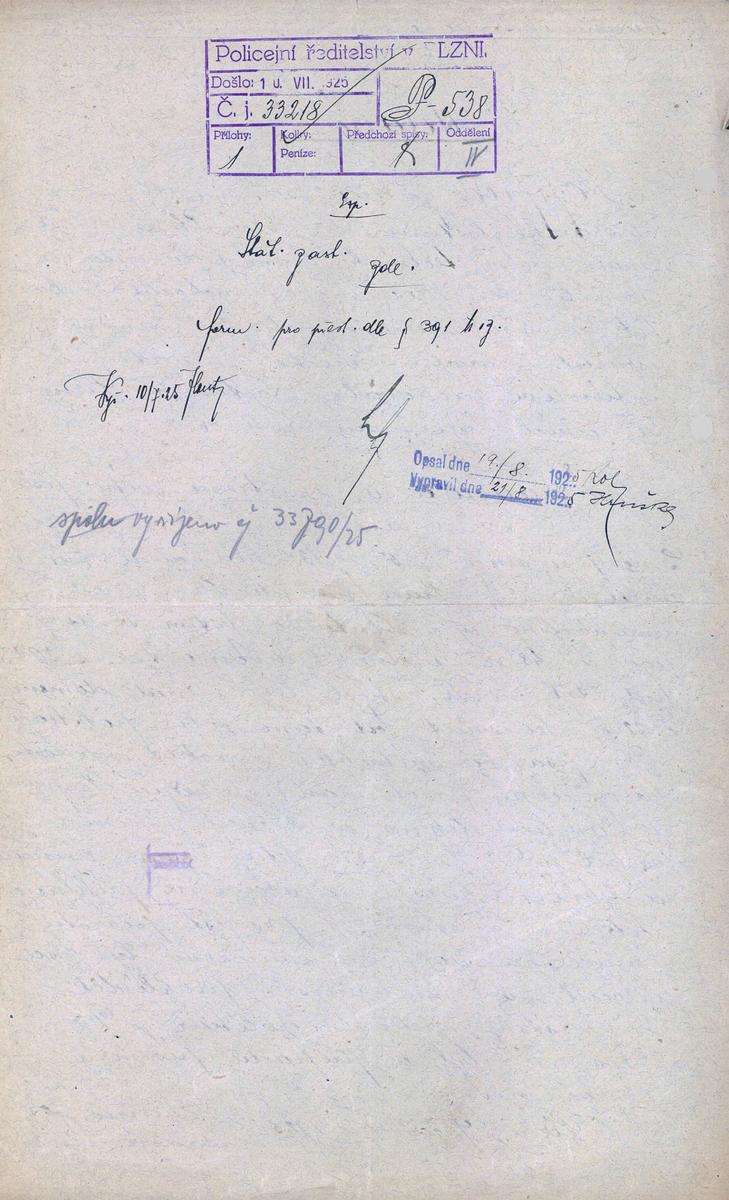 Policejní ředitelství v PLZNI.
Došlo: 10. VII. 1925
Č. j. 33218
P-538
Přílohy: 1
Kolky:
Peníze:
Předchozí spisy:
Oddělení IV
Exp.
Stát. zast.
zde.
form. pro přest. dle § 391 tr. z.
10/7.25
Opsal dne 19./8. 1925
Vypravil dne 21/8 1925
spolu vyřízeno čj 33790/25.